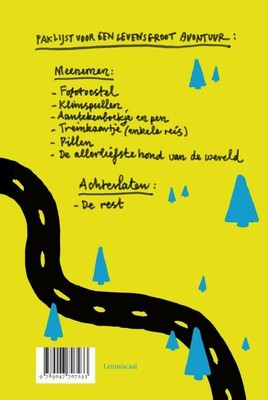 PAKLIJST VOOR EEN LEVENSGROOT AVONTUUR:
Meenemen:
- Fototoestel
- Klimspullen
- Aantekenboekje en pen
- Treinkaartje (enkele reis)
- Pillen
- De allerliefste hond van de wereld
Achterlaten:
- De rest
Lemniscaat
9 789047 707233